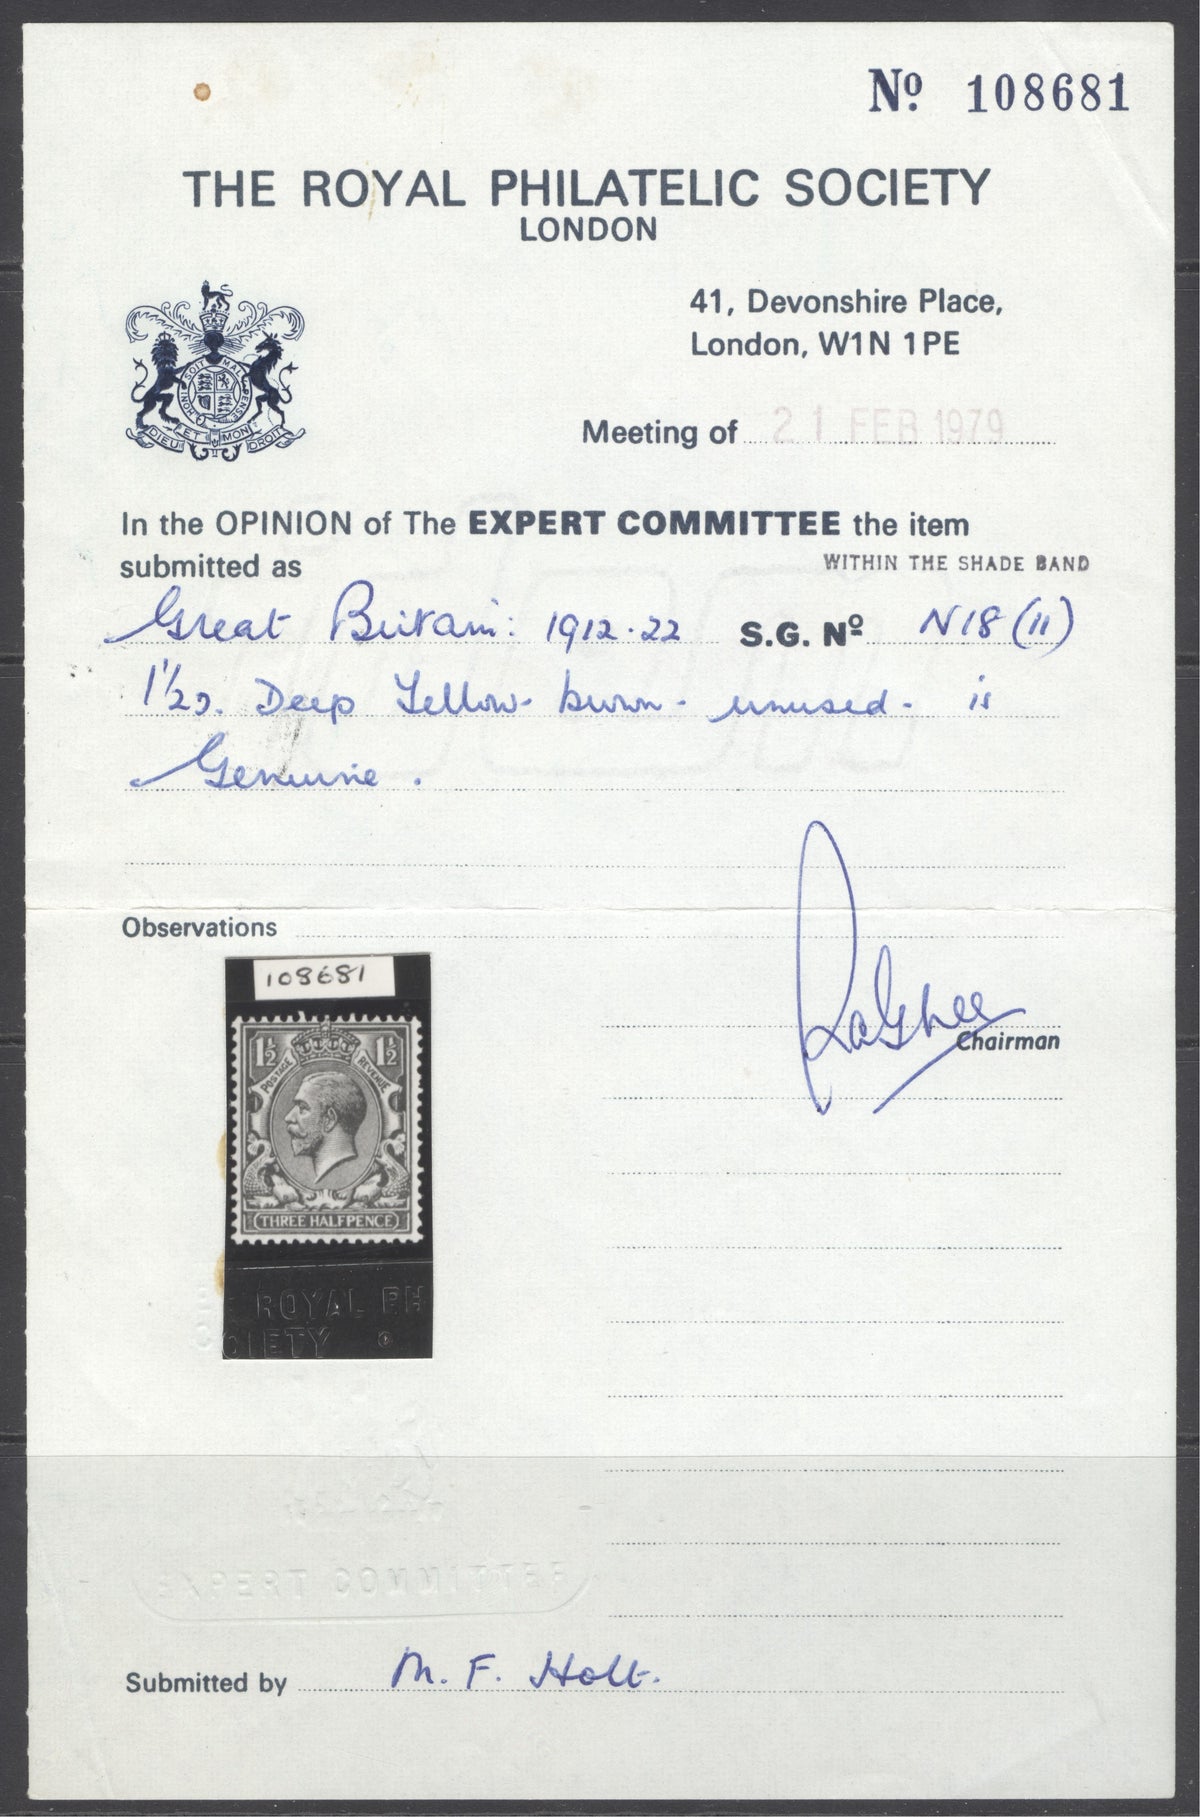 Nº 108681
THE ROYAL PHILATELIC SOCIETY
LONDON
41, Devonshire Place,
London, W1N 1PE
HONI SOIT MAL PENSE
DIEU ET MON DROIT
Meeting of 21 FEB 1979
In the OPINION of The EXPERT COMMITTEE the item
submitted as WITHIN THE SHADE BAND
Great Britain: 1912-22 S.G. Nº N18 (11)
1½d. Deep Yellow-brown - unused - is
Genuine.
Observations
108681
1½ 1½
POSTAGE REVENUE
THREE HALFPENCE
ROYAL PH
OCIETY
Chairman
EXPERT COMMITTEE
Submitted by M. F. Holt.